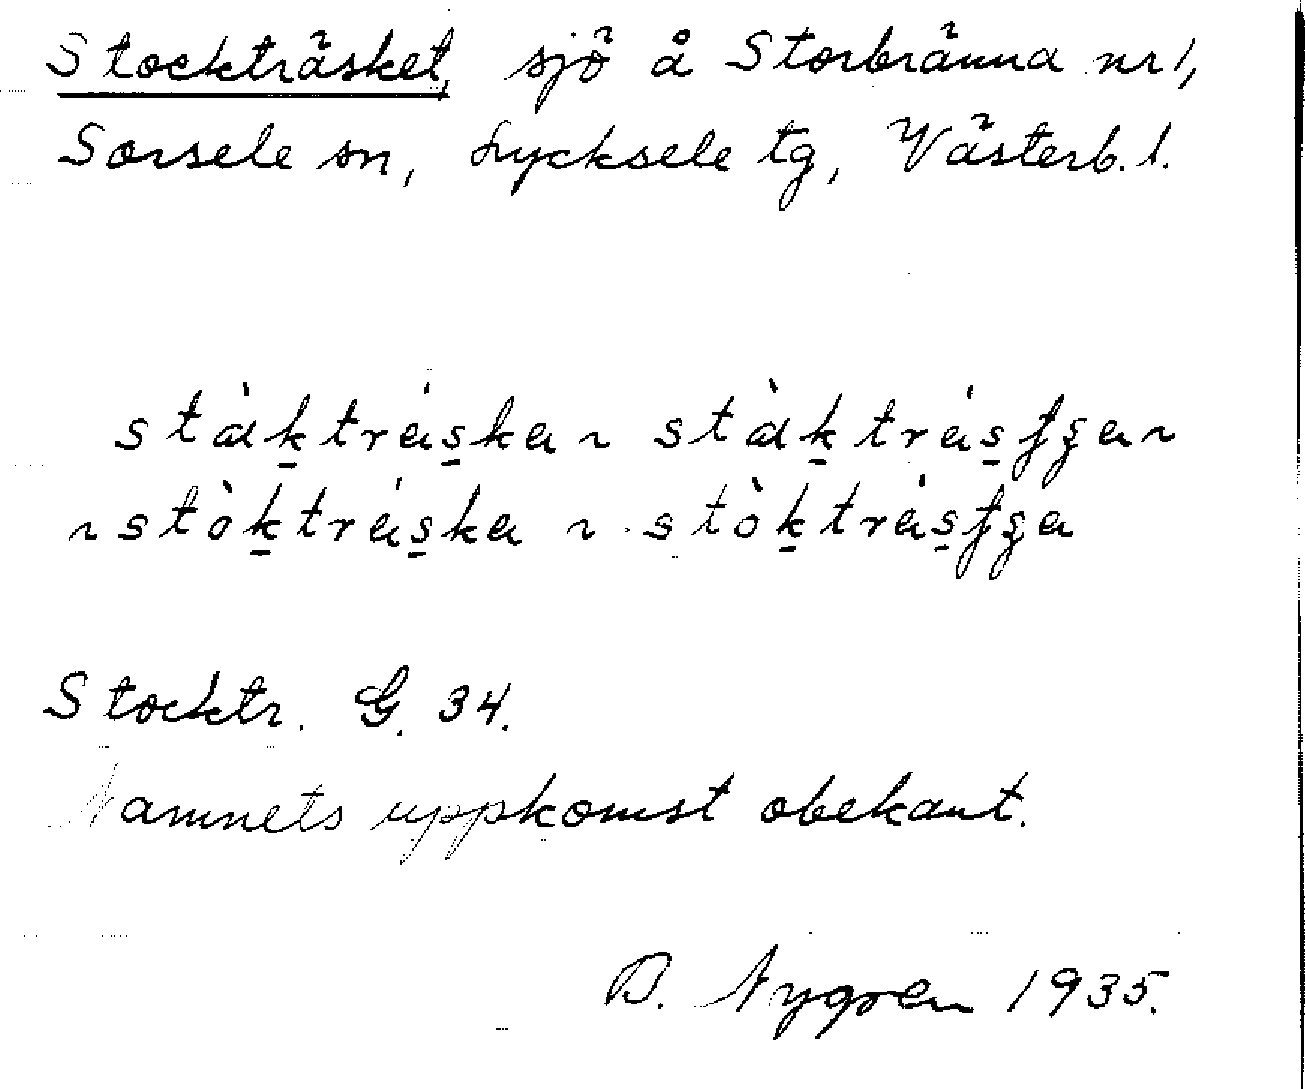 Stockträsket, sjö å Storbränna nr 1,
Sorsele sn, Lycksele tg, Västerb. l.
stàktráska ~ stàktrásʃʒa ~
~ stòktráska ~ stòktrásʃʒa
Stocktr. G. 34.
Namnets uppkomst obekant.
B. Nygren 1935.